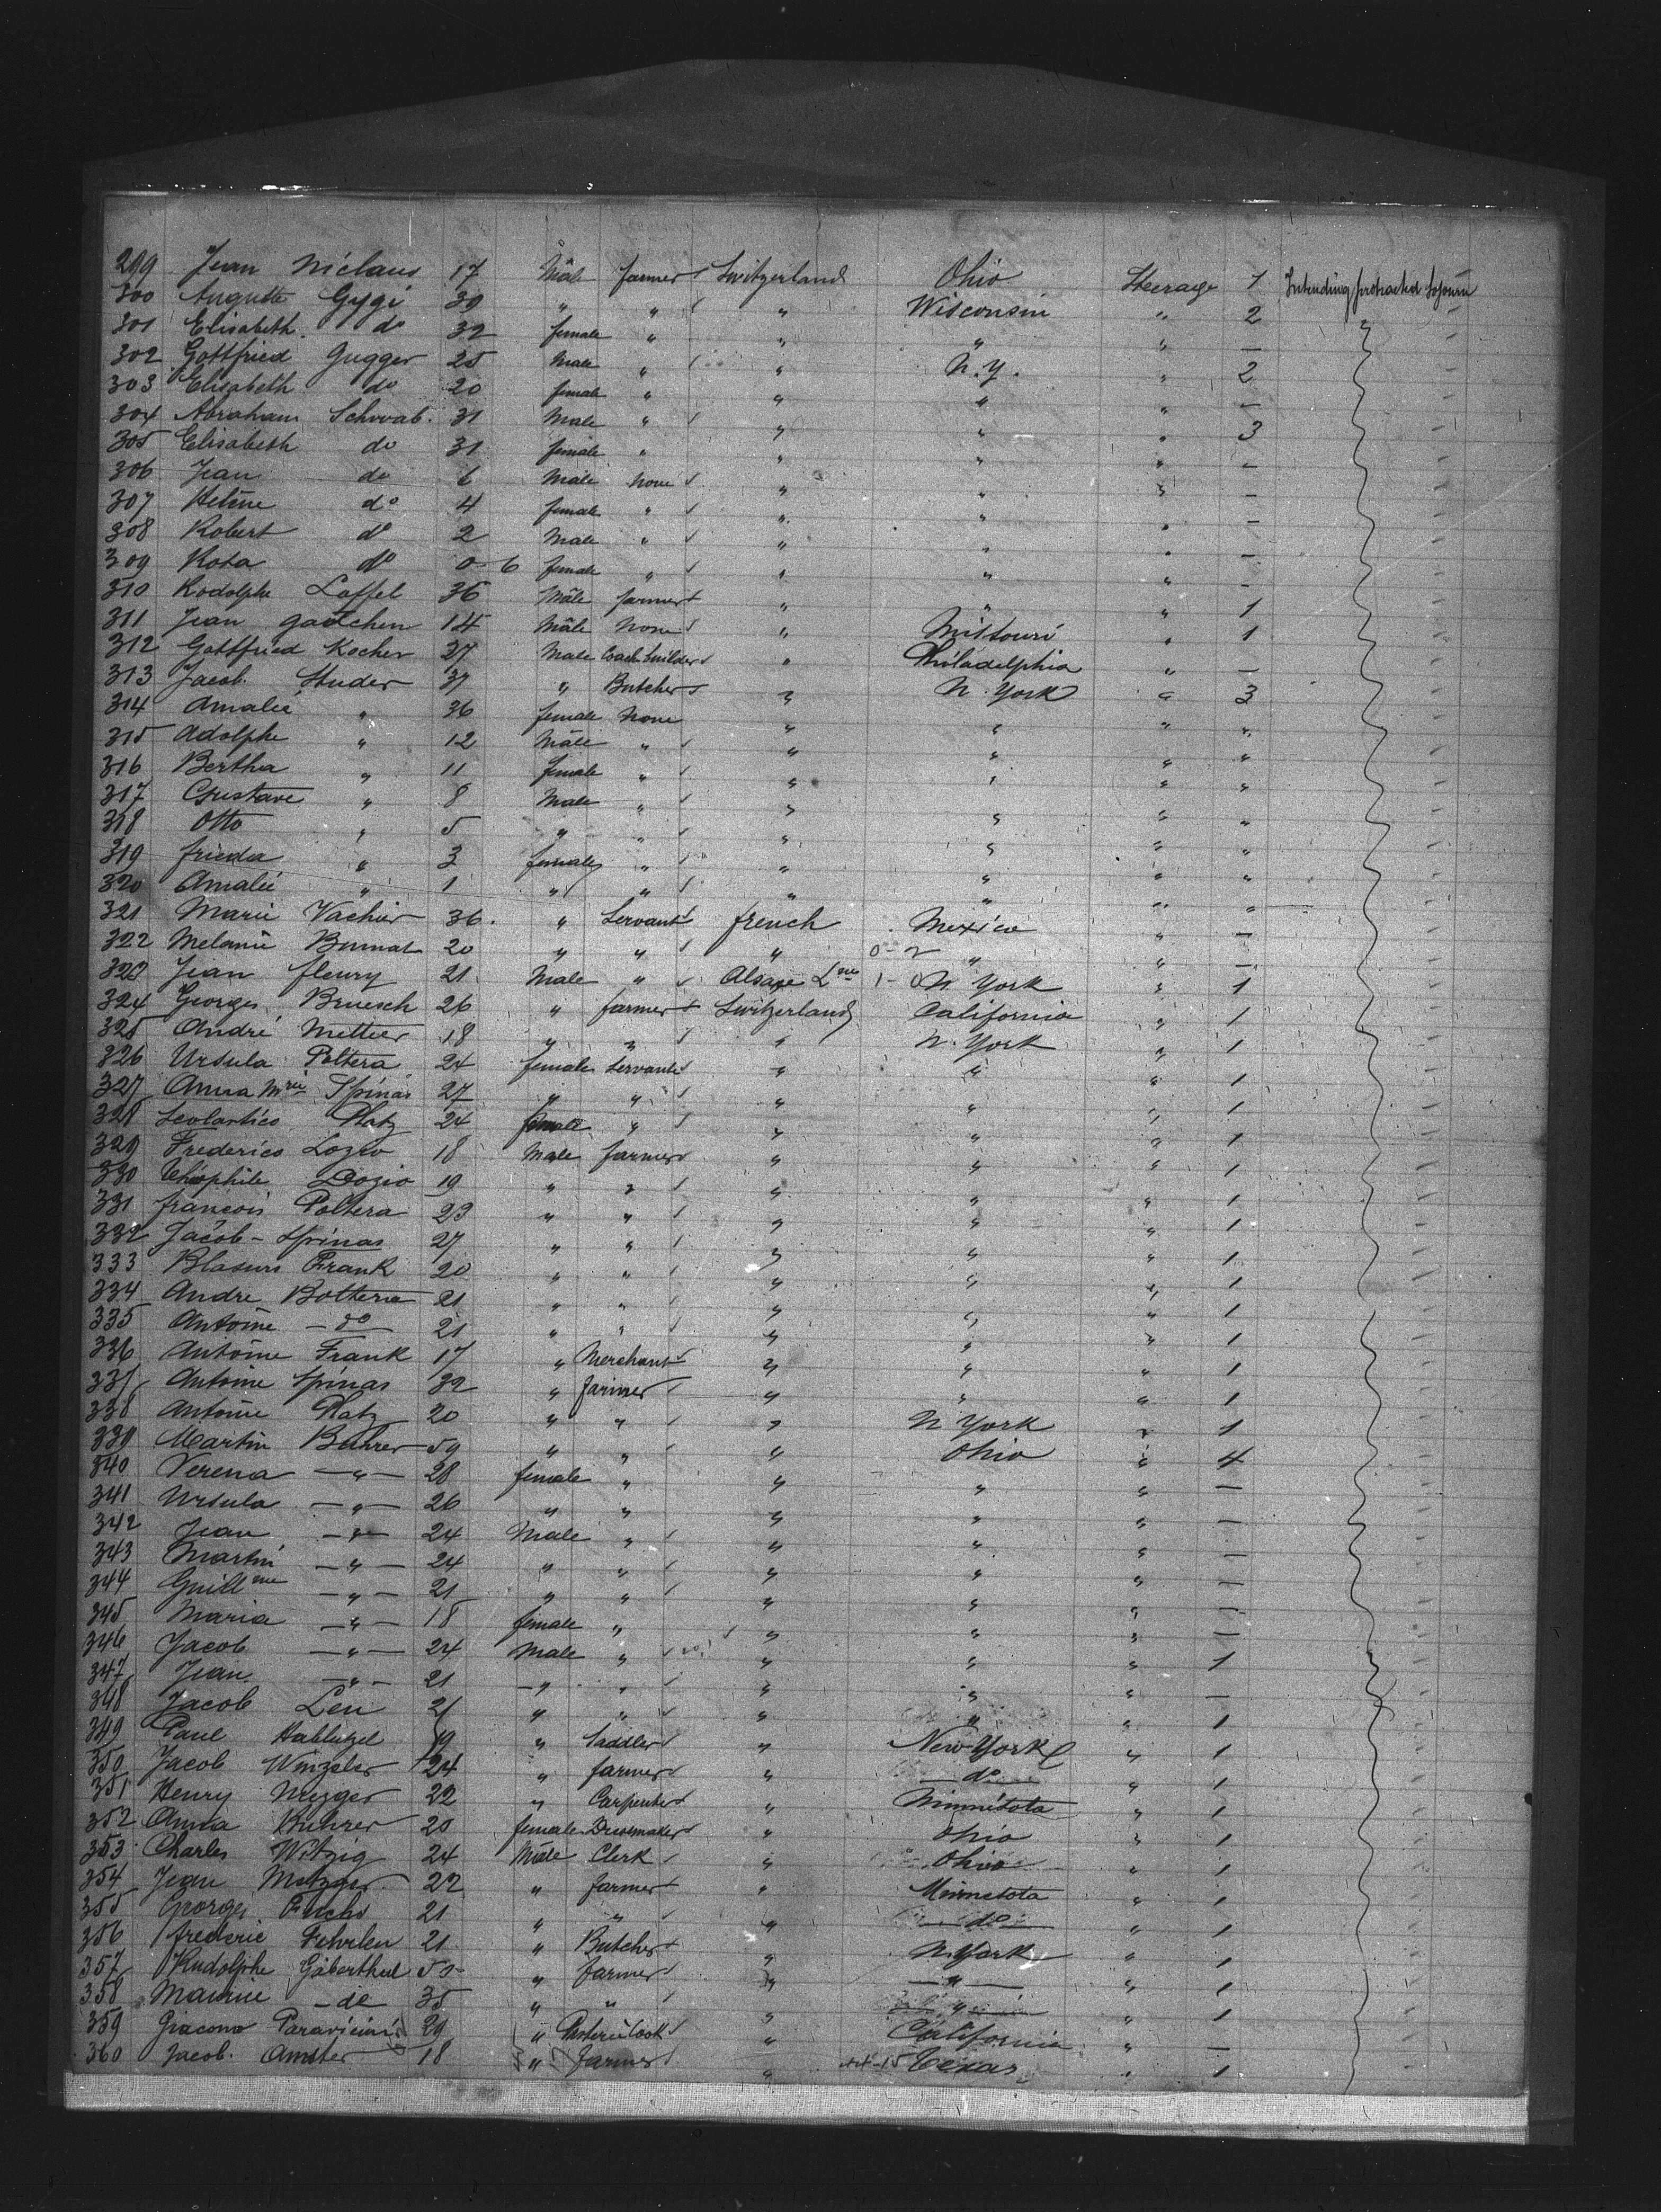 299 Jean Niclaus 17 Male farmer Switzerland Ohio Steerage 1 Intending protracted Sojourn
300 Auguste Gygi 39 " " " Wisconsin " 2 "
301 Elisabeth do 32 female " " " " —
302 Gottfried Gugger 25 Male " " N.Y. " 2
303 Elisabeth do 20 female " " " " —
304 Abraham Schwab 31 Male " " " " 3
305 Elisabeth do 31 female " " " " —
306 Jean do 6 Male None " " " —
307 Hélène do 4 female " " " " —
308 Robert do 2 Male " " " " —
309 Rosa do 0-6 female " " " " —
310 Rodolphe Loffel 36 Male farmer " " " 1
311 Jean 14 Male None " Missouri " 1
312 Gottfried Kocher 27 Male Coach builder " Philadelphia " —
313 Jacob Studer 37 " Butcher " N. York " 3
314 Amalie " 36 female None " " " "
315 Adolphe " 12 Male " " " " "
316 Bertha " 11 female " " " " "
317 Gustave " 8 Male " " " " "
318 Otto " 5 " " " " " "
319 frieda " 3 female " " " " "
320 Amalie " 1 " " " " " "
321 Marie Vachier 36 " Servant french Mexico " —
322 Melanie Burnat 20 " " " 0-2 " " —
323 Jean fleury 21 Male " Alsace Lne 1-0 N York " 1
324 Georges Bruesch 26 " farmer Switzerland California " 1
325 André Mettier 18 " " " N. York " 1
326 Ursula Poltera 24 female Servant " " " 1
327 Anna Mrie Spinas 27 " " " " " 1
328 Scolastica Platz 24 female " " " " 1
329 Frederico Lozio 18 Male farmer " " " 1
330 Théophile Dozio 19 " " " " " 1
331 francois Poltera 23 " " " " " 1
332 Jacob - Spinas 27 " " " " " 1
333 Frank 20 " " " " " 1
334 Andre Bottera 21 " " " " " 1
335 Antoine — do — 21 " " " " " 1
336 Antoine Frank 17 " Merchant " " " 1
337 Antoine Spinas 32 " farmer " " " 1
338 Antoine Platz 20 " " " N York " 1
339 Martin Buhrer 59 " " " Ohio " 4
340 Verena — " — 28 female " " " " —
341 Ursula — " — 26 " " " " " —
342 Jean — " — 24 Male " " " " —
343 Martin — " — 24 " " " " " —
344 Guillme — " — 21 " " " " " —
345 Maria — " — 18 female " " " " —
346 Jacob — " — 24 Male " " " " 1
347 Jean — " — 21 — " " " " " —
348 Jacob Leu 21 " " " " " 1
349 Paul Hablützel 19 " Saddler " New York " 1
350 Jacob Winzeler 24 " farmer " — do — " 1
351 Henry Mezger 22 " Carpenter " Minnesota " 1
352 Anna Buhrer 20 female Dressmaker " Ohio " 1
353 Charles Witzig 24 Male Clerk " Ohio " 1
354 Jean Metzger 22 " farmer " Minnesota " 1
355 Georges Fuchs 21 " " " — do — " 1
356 frederic Fehrlen 21 " Butcher " N. York " 1
357 Rudolphe Gäberthuel 50 " farmer " — " — " 1
358 Maurice — do 35 " " " " " 1
359 Giacomo Paravicini 29 " Cook " California " —
360 Jacob Amsler 18 " farmer " Texas " 1